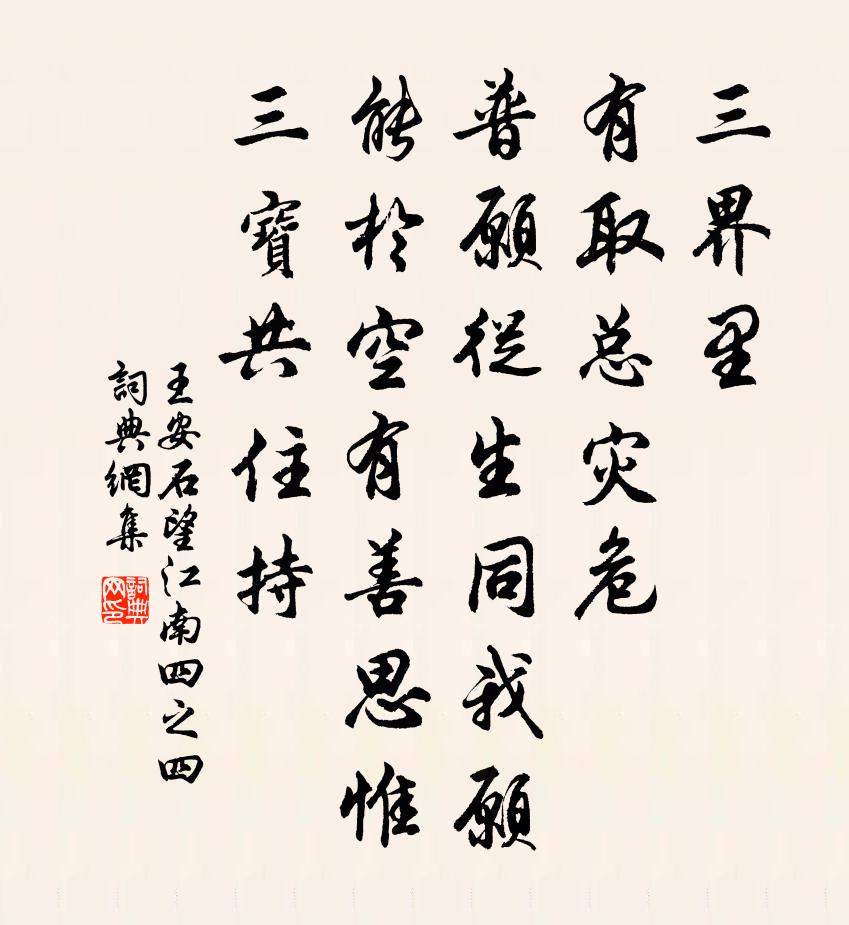 三界里
有取总灾危
普願從生同我願
能於空有善思惟
三寶共住持
王安石望江南四之四
詞典網集
詞典网印